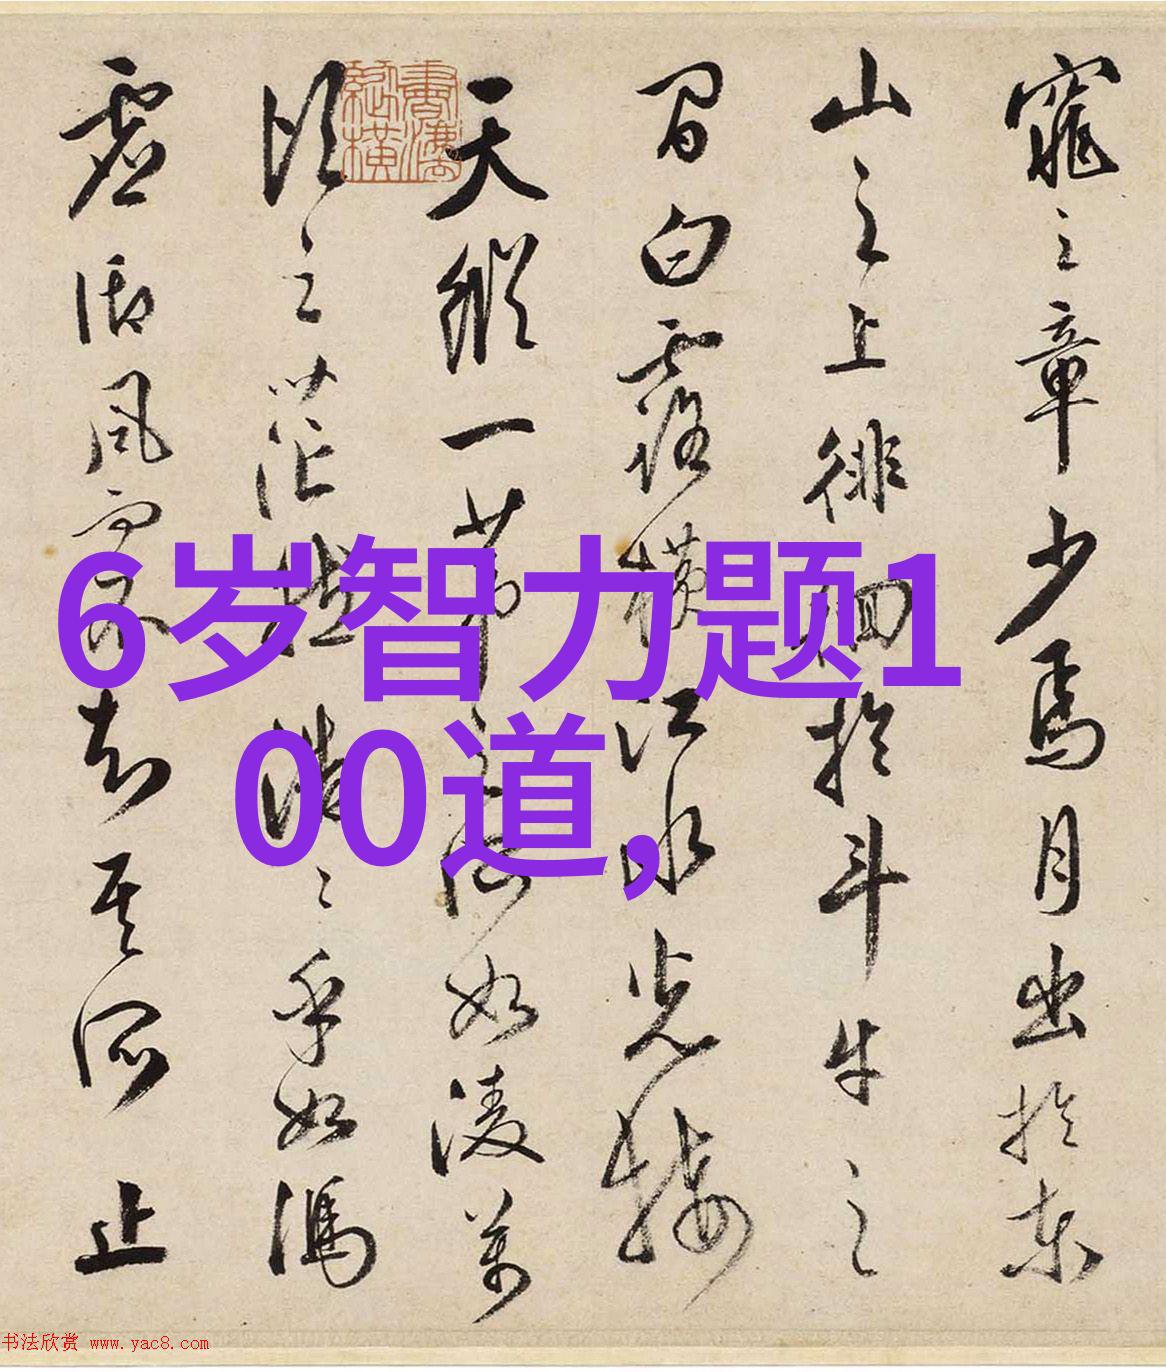 窕之章少焉月出於東
山之上徘徊於斗牛之
間白露橫江水光接
天縱一葦之所如淩萬
頃之茫然浩〻乎如馮
虛御風而不知其所止
6岁智力题1
00道,
书法欣赏 www.yac8.com